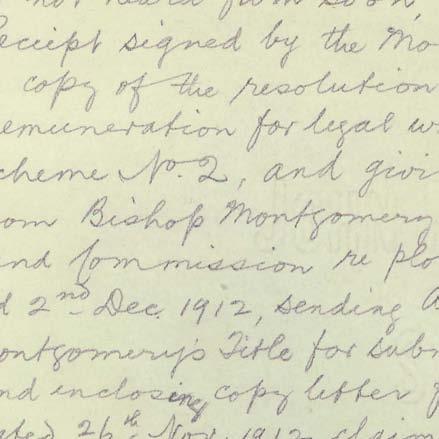 not heard from soon,
eceipt signed by the Mo
copy of the resolution
emuneration for legal w
cheme No. 2, and givi
om Bishop Montgomery
and Commission re plo
d 2nd Dec. 1912, sending
ontgomery's Title for subm
nd inclosing copy letter
ated 26th Nov. 1912 claim